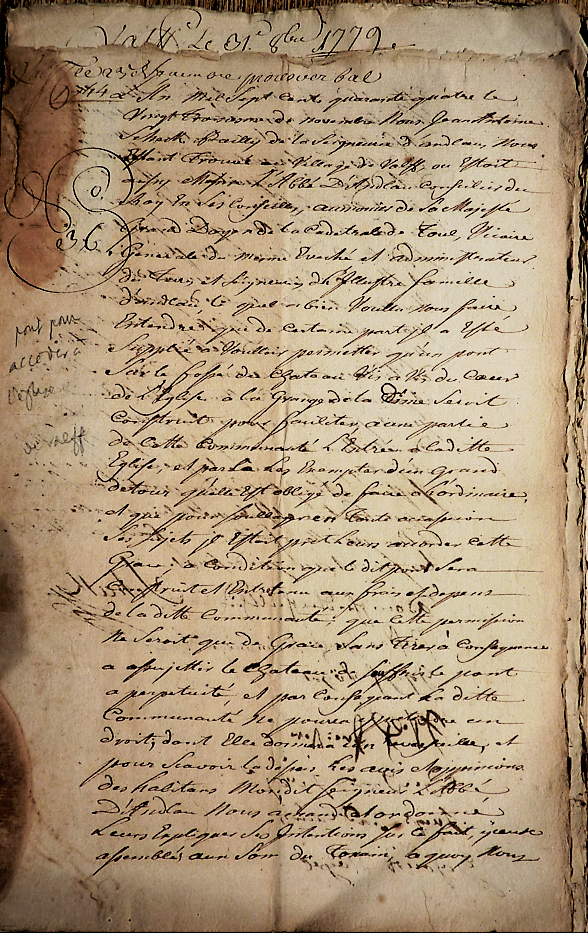 Valff Le 31.e 8bre 1779.
23e Novembre procover bal
1744 L'An mil Sept Cent quarante quatre le
Vingt Troisieme de novembre Nous Jean Antoine
Scheck Bailly de la Seigneurie d'andlau, Nous
Estant Trouvé au Village de Valff ou Estoit
aussy Monsr. L'Abbé D'Andlau Conseiller du
Roy en Ses Conseilles, aumonier de Sa Majesté
Grand Doyen de la Cathedralle de Toul, Vicaire
General du meme Eveché et administrateur
des Terres et Seigneuries de L'Illustre famille
d'andlau, le quel a bien Voulu Nous faire
Entendre que de certaine part il a Esté
Supplié a Vouloir permetter qu'un pont
Sur le fossé du Chateau Vis a Vis du Cœur
de L'Eglise a la Grange de la Dime Seroit
Construit pour faciliter a une partie
de Cette Communauté L'Entrée a la ditte
Eglise, et par la Les Exempter d'un Grand
detour qu'elle Est obligé de faire a L'ordinaire,
et que pour soullager en Toute occassion
Ses Sujets jl Estoit prest a leurs accorder cette
Grace, a Condition que le dit pont Sera
Construit et Entretenu aux frais et depens
de la ditte Communauté, que Cette permission
Ne Seroit que de Grace Sans Tirer a Consequence
a assujettir le Chateau de Souffrir le pont
a perpetuité et par Consequant La ditte
Communauté Ne pourra un
droit, dont Elle donnera Un reversaille, et
pour Scavoir la dessus Les avis et oppinions
des habitans Mondit Seigneur L'Abbé
D'Andlau Nous a ordonné
Leurs Expliquer Ses Intentions sur le fait, yceux
assemblés au Son du a quoy Nous
pont pour
accéder à
l'église
de Valff
O
36